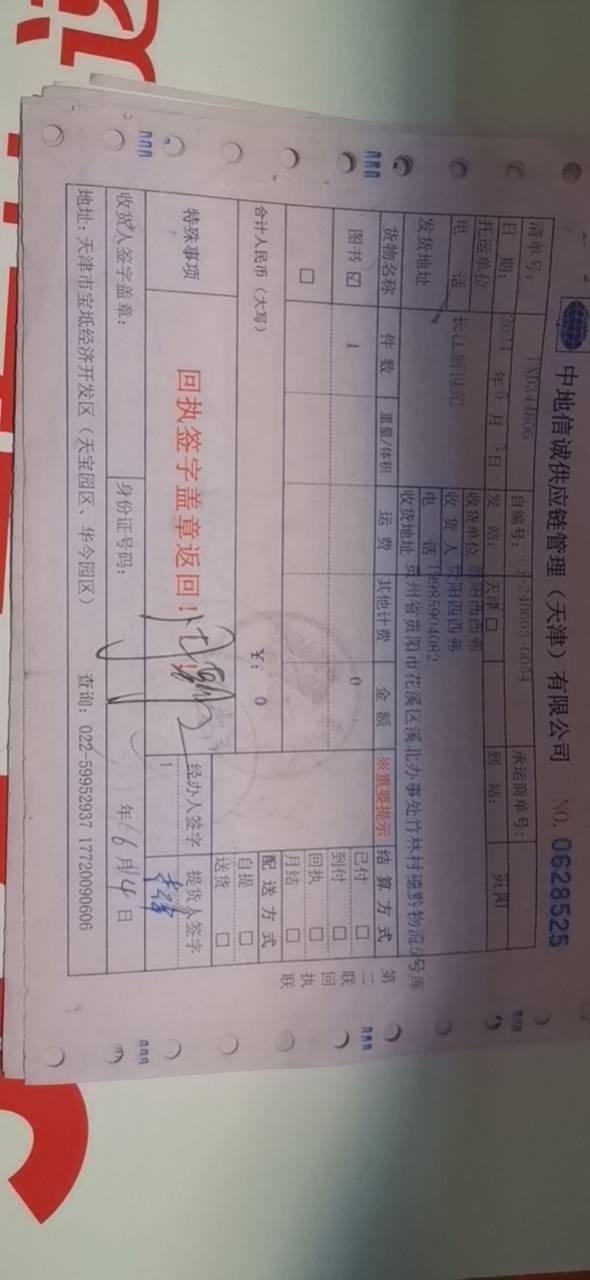 中地信诚供应链管理（天津）有限公司 NO. 0628525
清单号： TXD344806 自编号： 承运商单号：
日 期： 2024 年 6 月 3 日 发 站： 天津 □ 到 站： 贵阳
托运单位 收货单位 贵阳西西弗
收 货 人 贵阳西西弗
电 话 长江新世纪 电 话 19985904082
发货地址 收货地址 贵州省贵阳市花溪区溪北办事处竹林村德黔物流5号库
货物名称 件 数 重量/体积 运 费 其他计费 金 额 ※重要提示 结 算 方 式
图书 ☑ 1 0 已付 □
到付 □
□ 回执 □
月结 □
合计人民币（大写） ￥： 0 配 送 方 式
自提 □
送货 □
特殊事项 回执签字盖章返回！ 经办人签字 提货人签字
收货人签字盖章： 身份证号码： 年 6 月 14 日
地址：天津市宝坻经济开发区（天宝园区、华今园区） 查询： 022-59952937 17720090606
第二联 回执联